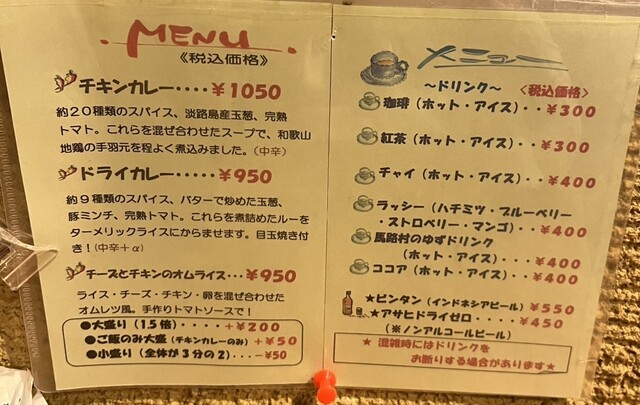 MENU
《税込価格》
チキンカレー････¥1050
約２０種類のスパイス、淡路島産玉葱、完熟
トマト。これらを混ぜ合わせたスープで、和歌山
地鶏の手羽元を程よく煮込みました。（中辛）
ドライカレー･････¥950
約９種類のスパイス、バターで炒めた玉葱、
豚ミンチ、完熟トマト。これらを煮詰めたルーを
ターメリックライスにからませます。目玉焼き付
き！（中辛＋α）
チーズとチキンのオムライス･･･¥950
ライス・チーズ・チキン・卵を混ぜ合わせた
オムレツ風。手作りトマトソースで！
●大盛り（1.5倍）････＋¥200
●ご飯のみ大盛（チキンカレーのみ）＋¥50
●小盛り（全体が３分の２）･･･−¥50
メニュー
～ドリンク～ 《税込価格》
珈琲（ホット・アイス）･･¥300
紅茶（ホット・アイス）･･･¥300
チャイ（ホット・アイス）･･¥400
ラッシー（ハチミツ・ブルーベリー
・ストロベリー・マンゴ）･･¥400
馬路村のゆずドリンク
（ホット・アイス）･･¥400
ココア（ホット・アイス）･･¥400
★ビンタン（インドネシアビール）¥550
★アサヒドライゼロ････¥450
（※ノンアルコールビール）
★ 混雑時にはドリンクを
お断りする場合があります★